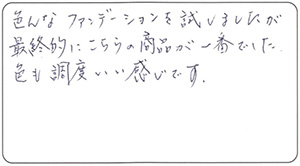 色んなファンデーションを試しましたが
最終的にこちらの商品が一番でした.
色も調度いい感じです.